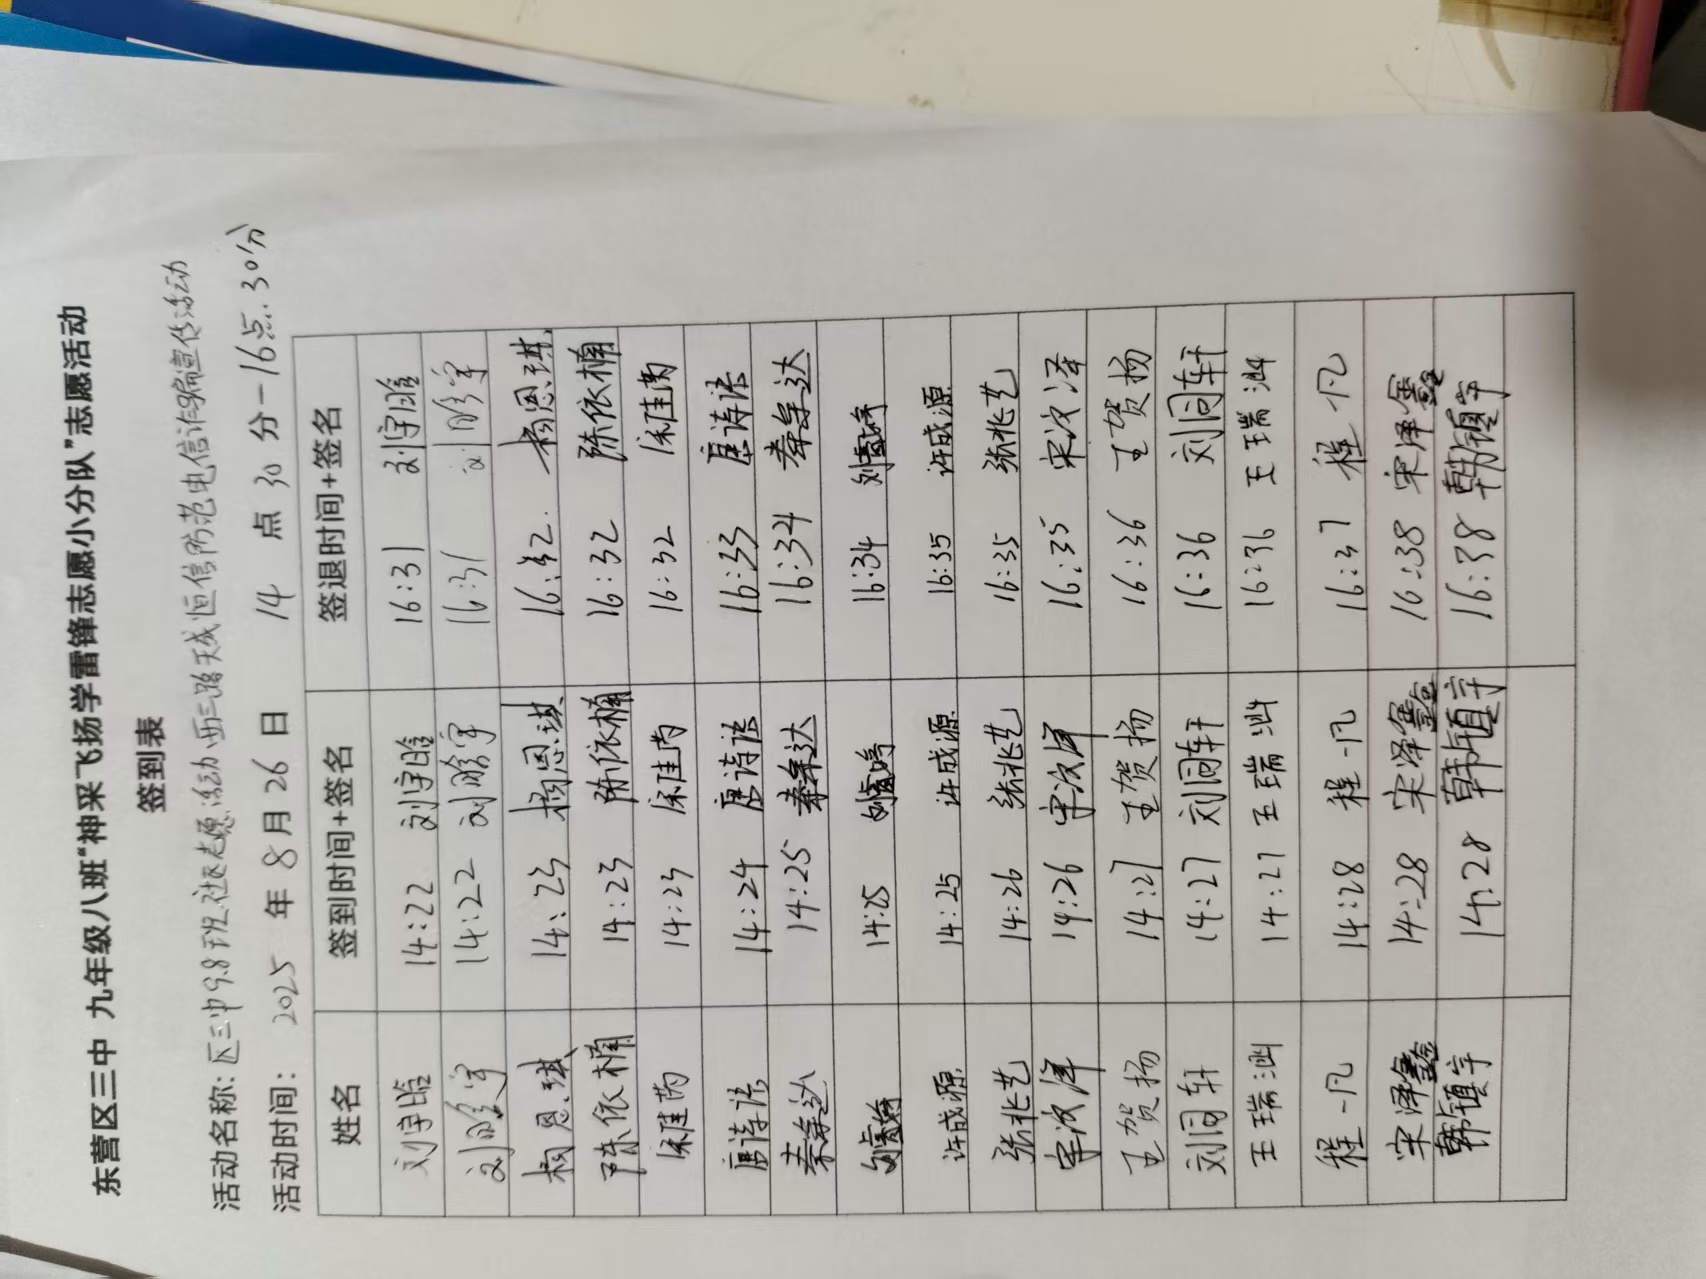 东营区三中 九年级八班“神采飞扬学雷锋志愿小分队”志愿活动
签到表
活动名称：区三中9.8班社区志愿活动西三路天成恒信防范电信诈骗宣传活动
活动时间： 2025 年 8 月 26 日 14 点 30 分-16点30分
姓名 签到时间+签名 签退时间+签名
刘宇晗 14:22 刘宇晗 16:31 刘宇晗
刘鹏宇 14:22 刘鹏宇 16:31 刘鹏宇
杨恩琪 14:23 杨恩琪 16:32 杨恩琪
陈依楠 14:23 陈依楠 16:32 陈依楠
14:23 16:32
唐诗语 14:24 唐诗语 16:33 唐诗语
秦圣达 14:25 秦圣达 16:34 秦圣达
14:25 16:34
许成源 14:25 许成源 16:35 许成源
张兆艺 14:26 张兆艺 16:35 张兆艺
宋汶泽 14:26 宋汶泽 16:35 宋汶泽
王贺扬 14:27 王贺扬 16:36 王贺扬
刘同轩 14:27 刘同轩 16:36 刘同轩
王瑞 14:27 王瑞 16:36 王瑞
程一凡 14:28 程一凡 16:37 程一凡
宋泽鑫 14:28 宋泽鑫 16:38 宋泽鑫
韩镇宇 14:28 韩镇宇 16:38 韩镇宇